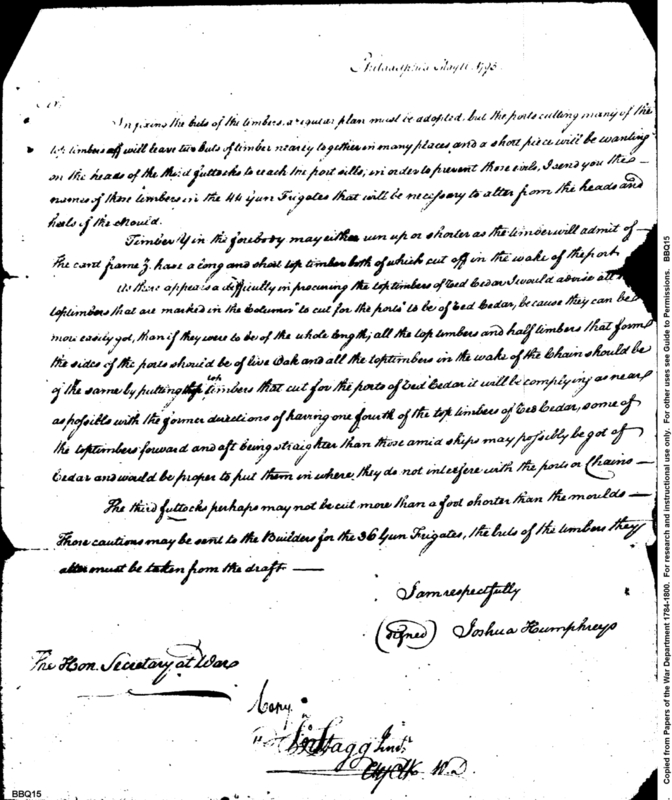 Philadelphia May 11 1795
Sir
In fixing the buts of the timbers, a regular plan must be adopted, but the ports cutting many of the
top timbers off will leave two buts of timber nearly together in many places and a short piece will be wanting
on the heads of the third futtocks to reach the port sills, in order to prevent those evils, I send you the
names of those timbers in the 44 Gun Frigates that will be necessary to alter from the heads and
heels of the Mould.
Timber Y in the forebody may either run up or shorter as the timber will admit of
The cant frame Z. have a long and short top timber both of which cut off in the wake of the port
As there appears a difficulty in procuring the top timbers of Red Cedar I would advise all
toptimbers that are marked in the Column "to cut for the ports" to be of Red Cedar, because they can be
more easily got, than if they were to be of the whole length; all the top timbers and half timbers that form
the sides of the ports should be of live Oak and all the toptimbers in the wake of the Chain should be
of the same by putting top timbers that cut for the ports of Red Cedar it will be complying as near
as possible with the former directions of having one fourth of the top timbers of Red Cedar, some of
the toptimbers forward and aft being straighter than those amid ships may possibly be got of
Cedar and would be proper to put them in where they do not interfere with the ports or Chains
The third futtocks perhaps may not be cut more than a foot shorter than the moulds
Those cautions may be sent to the Builders for the 36 Gun Frigates, the buts of the timbers they
alter must be taken from the draft
I am respectfully
(signed) Joshua Humphreys
The Hon. Secretary at War
Copy
Stagg Junr
Ch Clk W.D
BBQ15
Copied from Papers of the War Department 1784-1800. For research and instructional use only. For other uses see Guide to Permissions. BBQ15